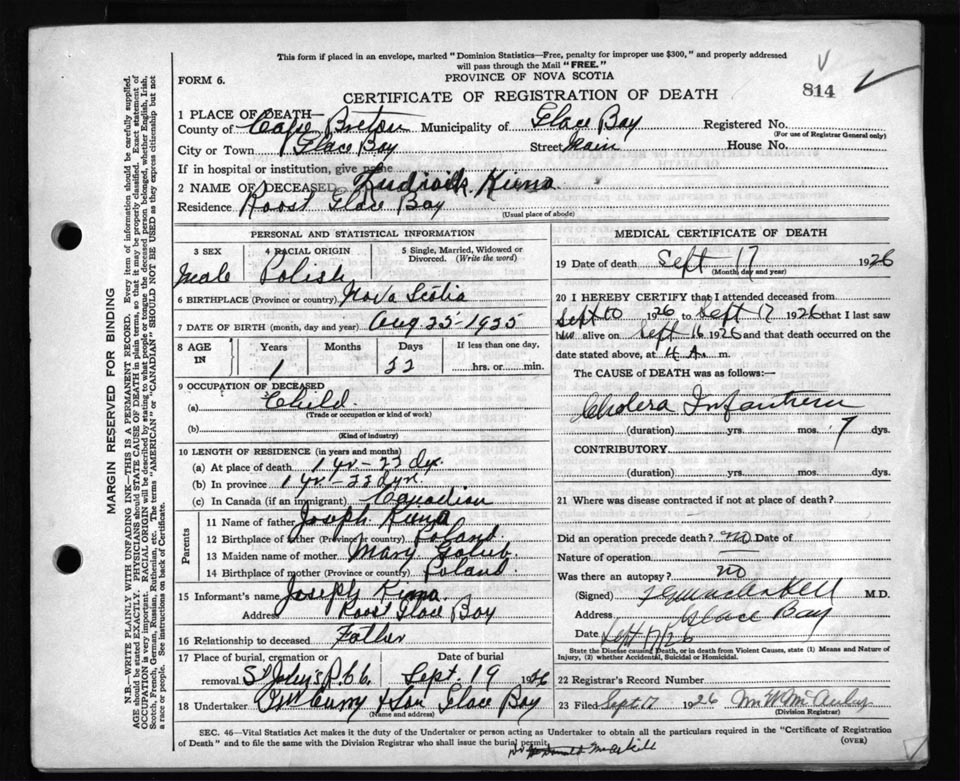 This form if placed in an envelope, marked "Dominion Statistics—Free, penalty for improper use $300," and properly addressed
will pass through the Mail "FREE."
FORM 6.
PROVINCE OF NOVA SCOTIA
814
CERTIFICATE OF REGISTRATION OF DEATH
1 PLACE OF DEATH—
County of Cape Breton Municipality of Glace Bay Registered No.
(For use of Registrar General only)
City or Town Glace Bay Street Main House No.
If in hospital or institution, give name
2 NAME OF DECEASED Ludwik Kuna
Residence Roost Glace Bay
(Usual place of abode)
PERSONAL AND STATISTICAL INFORMATION
3 SEX 4 RACIAL ORIGIN 5 Single, Married, Widowed or
Divorced. (Write the word)
male Polish
6 BIRTHPLACE (Province or country) Nova Scotia
7 DATE OF BIRTH (month, day and year) Aug 25 1925
8 AGE IN Years Months Days If less than one day,
1 22 hrs. or min.
9 OCCUPATION OF DECEASED
(a) Child.
(Trade or occupation or kind of work)
(b)
(Kind of industry)
10 LENGTH OF RESIDENCE (in years and months)
(a) At place of death 1 yr - 22 dys.
(b) In province 1 yr - 22 dys.
(c) In Canada (if an immigrant) Canadian
Parents
11 Name of father Joseph Kuna
12 Birthplace of father (Province or country) Poland
13 Maiden name of mother Mary Golub
14 Birthplace of mother (Province or country) Poland
15 Informant's name Joseph Kuna
Address Roost Glace Bay
16 Relationship to deceased Father
17 Place of burial, cremation or Date of burial
removal St John's R.C.C. Sept. 19 1926
18 Undertaker Curry & Son Glace Bay
(Name and address)
MEDICAL CERTIFICATE OF DEATH
19 Date of death Sept 17 1926
(Month, day and year)
20 I HEREBY CERTIFY that I attended deceased from
Sept 10 1926 to Sept 17 1926 that I last saw
him alive on Sept 16 1926 and that death occurred on the
date stated above, at 4 A. m.
The CAUSE of DEATH was as follows:—
Cholera Infantum
(duration) yrs. mos. 7 dys.
CONTRIBUTORY
(duration) yrs. mos. dys.
21 Where was disease contracted if not at place of death?
Did an operation precede death? no Date of
Nature of operation
Was there an autopsy? no
(Signed) M.D.
Address Glace Bay
Date Sept 17/26
State the Disease causing Death, or in death from Violent Causes, state (1) Means and Nature of
Injury, (2) whether Accidental, Suicidal or Homicidal.
22 Registrar's Record Number
23 Filed Sept. 17 1926
(Division Registrar)
SEC. 46—Vital Statistics Act makes it the duty of the Undertaker or person acting as Undertaker to obtain all the particulars required in the "Certificate of Registration
of Death" and to file the same with the Division Registrar who shall issue the burial permit. (OVER)
MARGIN RESERVED FOR BINDING
N.B.—WRITE PLAINLY WITH UNFADING INK—THIS IS A PERMANENT RECORD. Every item of information should be carefully supplied.
AGE should be stated EXACTLY. PHYSICIANS should STATE CAUSE OF DEATH in plain terms, so that it may be properly classified. Exact statement of
OCCUPATION is very important. RACIAL ORIGIN will be described by stating to what people or tongue the deceased person belonged, whether English, Irish,
Scotch, French, German, Russian, Ruthenian, etc. The terms "AMERICAN" or "CANADIAN" SHOULD NOT BE USED as they express citizenship but not
a race or people. See instructions on back of Certificate.